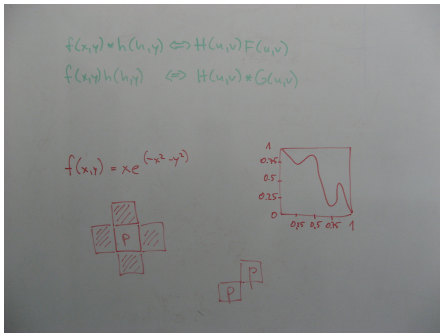 f(x,y)*h(h,y) ⇔ H(u,v)F(u,v)
f(x,y)h(h,y) ⇔ H(u,v)*G(u,v)
f(x,y) = xe^(-x²-y²)
1
0.75
0.5
0.25
0
0.25 0.5 0.75 1
P
P
P